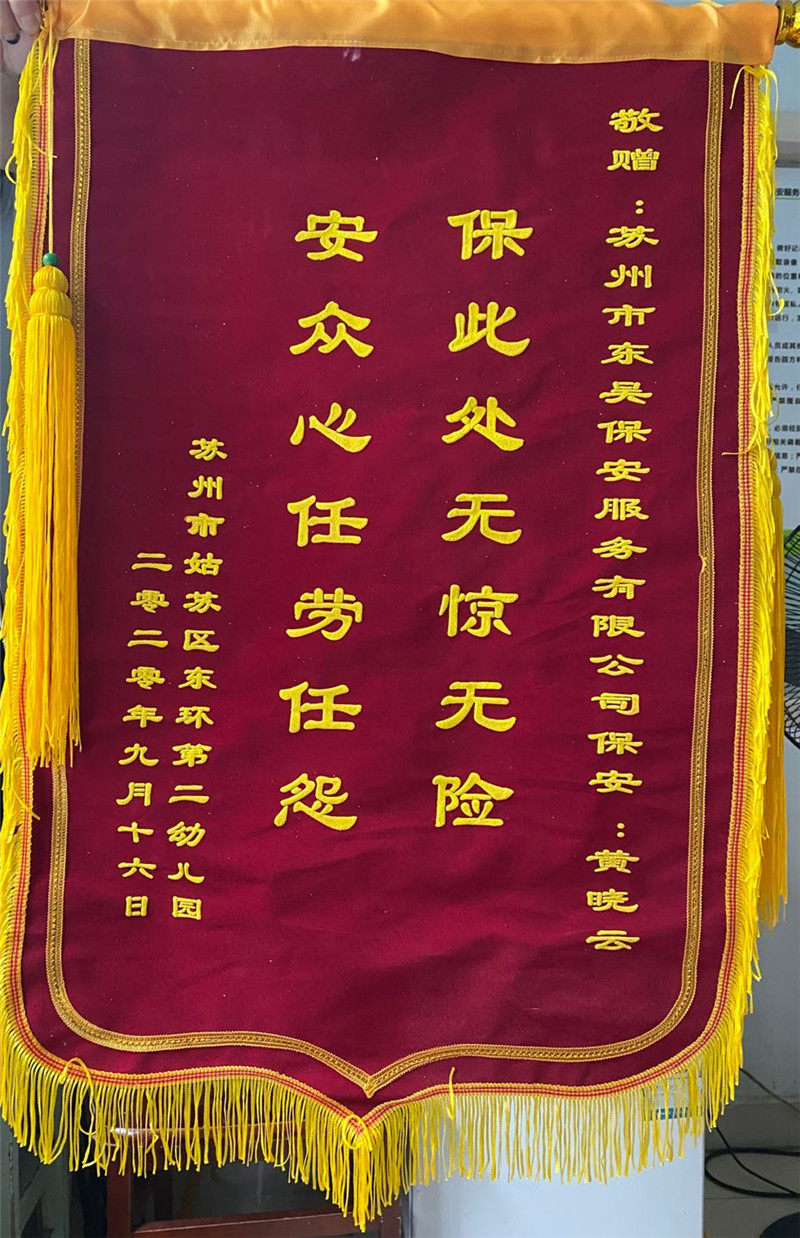 敬赠：苏州市东吴保安服务有限公司保安：黄晓云
保此处无惊无险
安众心任劳任怨
苏州市姑苏区东环第二幼儿园
二零二零年九月十六日